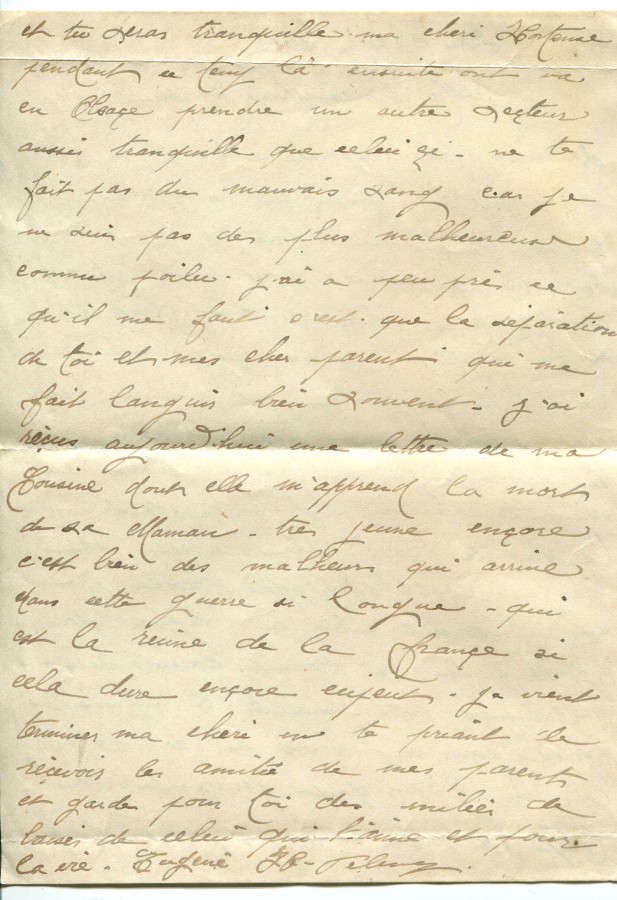 et tu seras tranquille ma cheri Hortense
pendant ce temp là ensuite ont va
en Alsaçe prendre un autre secteur
aussi tranquille que celui çi - ne te
fait pas du mauvais sang car je
ne suis pas des plus malheureuse
comme poilu - j'ai a peu près ce
qu'il me faut c'est que la séparation
de toi et mes cher parent qui me
fait languir bien souvent - j'ai
reçus aujourd'hui une lettre de ma
Cousine dont elle m'apprend la mort
de sa Maman - très jeune ençore
c'est bien des malheurs qui arrive
dans cette guerre si longue - qui
est la reuine de la françe si
cela dure ençore - je vient
terminer ma cheri en te priant de
reçevois les amitié de mes parents
et garde pour toi des miliés de
baisés de celui qui t'aime et pour
la vie - Eugène